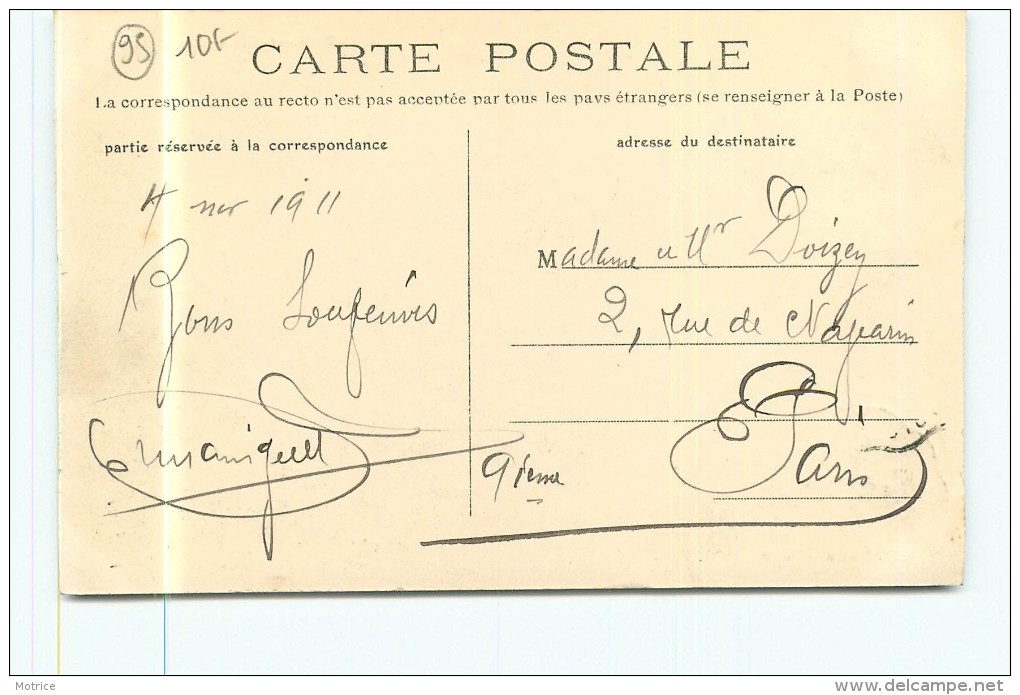 95 10F
CARTE POSTALE
La correspondance au recto n'est pas acceptée par tous les pays étrangers (se renseigner à la Poste)
partie réservée à la correspondance
adresse du destinataire
4 nov 1911
Bons Souvenirs
Madame et Mr Doizey
2, Rue de Navarin
Paris
9ième
Motrice
www.delcampe.net